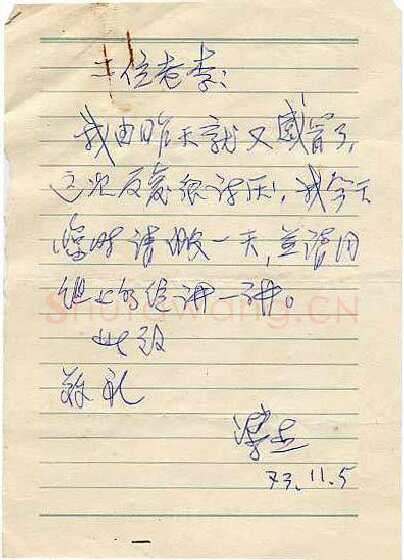 二位老李：
我由昨天就又感冒了，
这次反复很讨厌，我今天
临时请假一天，并请同
组上的给讲一讲。
此致
敬礼
73.11.5